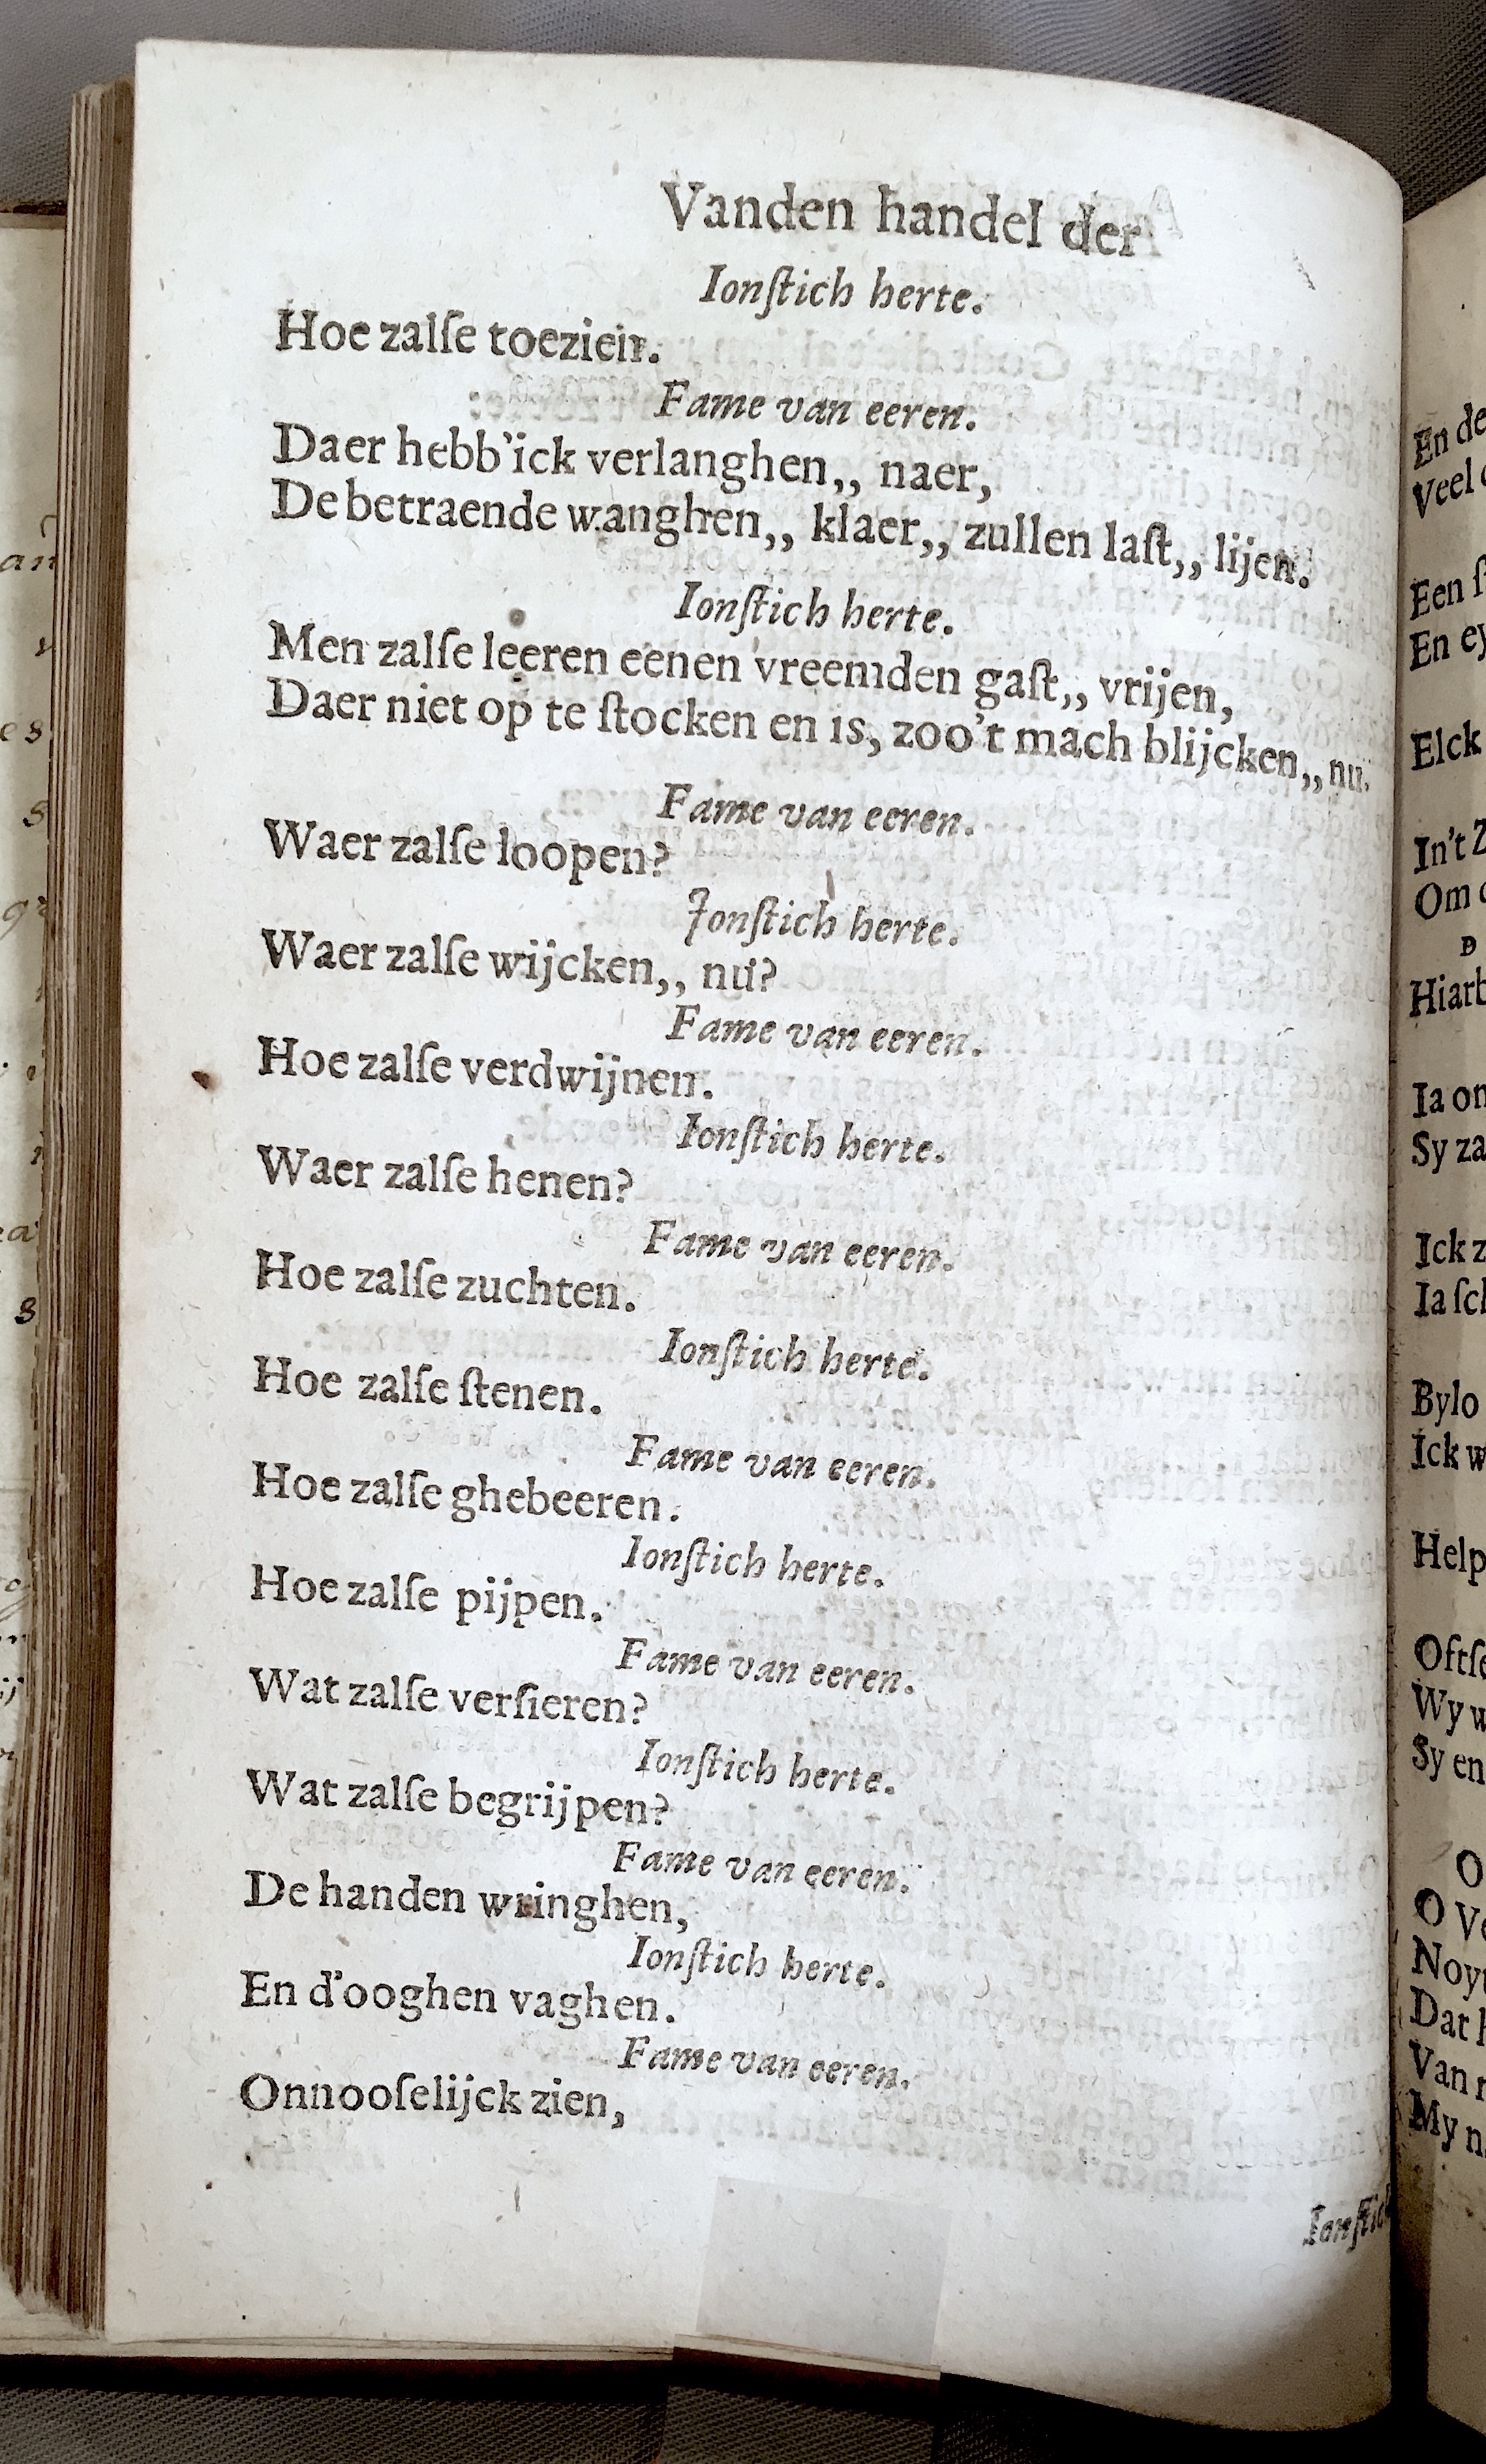 Vanden handel der
Ionſtich herte.
Hoe zalſe toezien.
Fame van eeren.
Daer hebb'ick verlanghen,, naer,
De betraende wanghen,, klaer,, zullen laſt,, lijen.
Ionſtich herte.
Men zalſe leeren eenen vreemden gaſt,, vrijen,
Daer niet op te ſtocken en is, zoo't mach blijcken,, nu.
Fame van eeren.
Waer zalſe loopen?
Jonſtich herte.
Waer zalſe wijcken,, nu?
Fame van eeren.
Hoe zalſe verdwijnen.
Ionſtich herte.
Waer zalſe henen?
Fame van eeren.
Hoe zalſe zuchten.
Ionſtich herte.
Hoe zalſe ſtenen.
Fame van eeren.
Hoe zalſe ghebeeren.
Ionſtich herte.
Hoe zalſe pijpen.
Fame van eeren.
Wat zalſe verſieren?
Ionſtich herte.
Wat zalſe begrijpen?
Fame van eeren.
De handen wringhen,
Ionſtich herte.
En d'ooghen vaghen.
Fame van eeren.
Onnooſelijck zien,
Ionſtich
En de
Veel
Een
En
Elck
In't
Om
Hiarb
Ia
Sy
Ick
Ia
Bylo
Ick
Help
Oftſe
Wy
Sy en
O
O
Noyt
Dat
Van
My